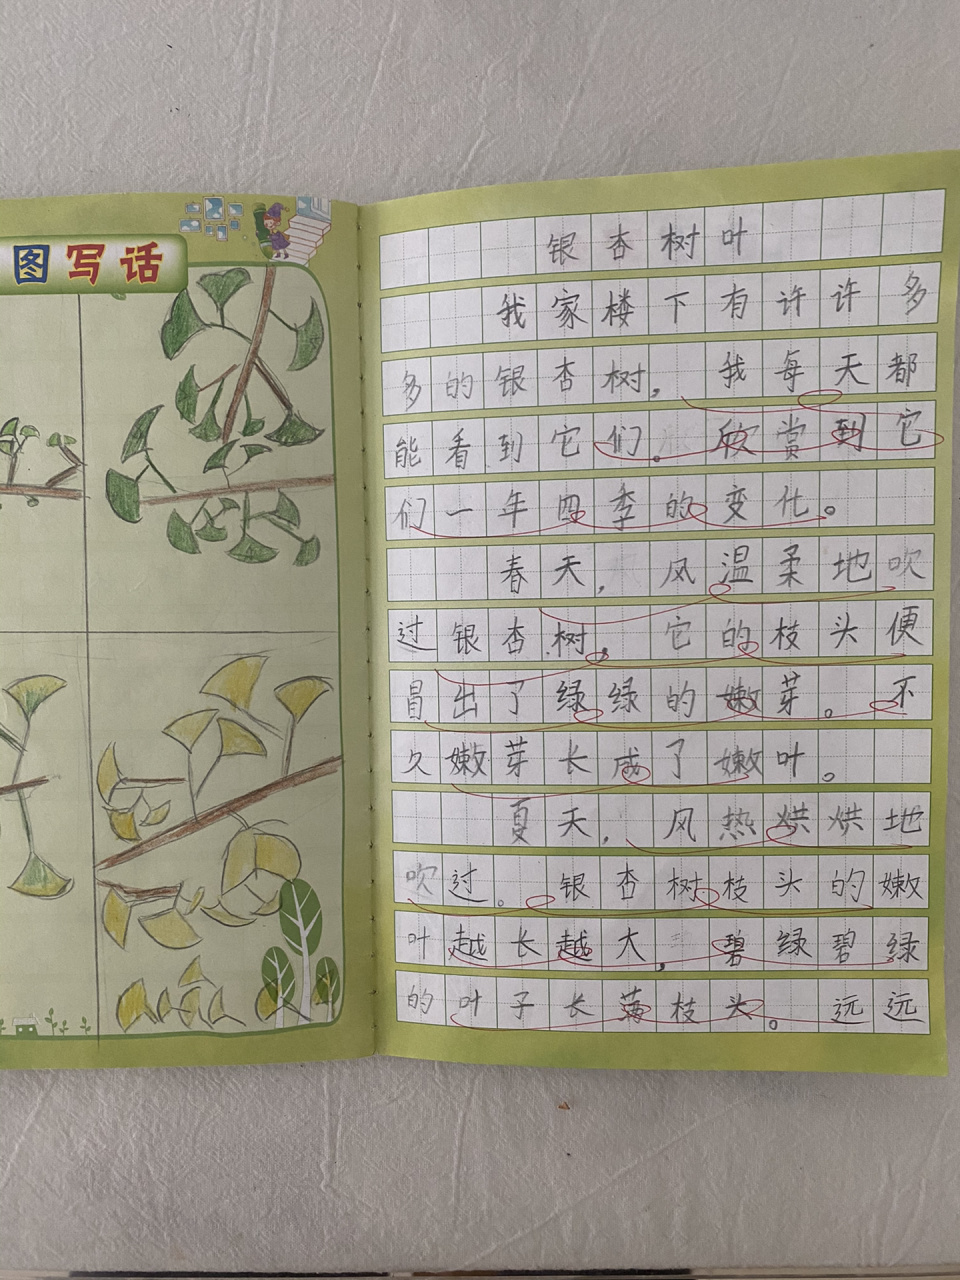 图写话
银杏树叶
我家楼下有许许多
多的银杏树，我每天都
能看到它们。欣赏到它
们一年四季的变化。
春天，风温柔地吹
过银杏树，它的枝头便
冒出了绿绿的嫩芽。不
久嫩芽长成了嫩叶。
夏天，风热烘烘地
吹过。银杏树枝头的嫩
叶越长越大，碧绿碧绿
的叶子长满枝头。远远